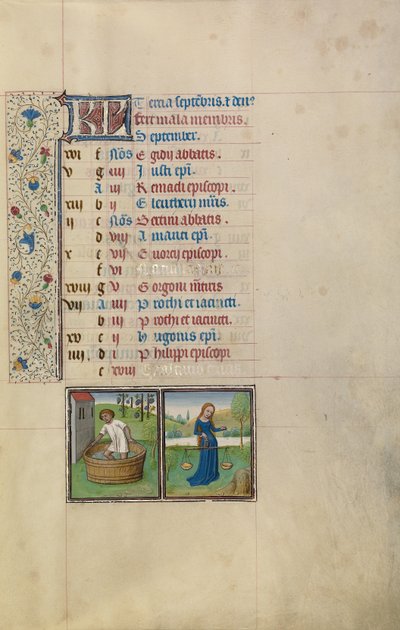 KL Tercia septẽbris. & deñ
fert mala membris.
September.
xvi f Nõs Egidij abbatis.
v g iiii Justi epĩ.
A iii Remacli episcopi.
xiii b ii Eleutherij
ii c Nõs Bertini abbatis.
d viii Amanti epĩ.
x e vii Evorcij episcopi.
f vi
xviii g v Gorgoni
vii A iiii Prothi et iacincti.
b iii Prothi et iacincti.
xv c ii Hugonis epĩ.
iiii d Philippi episcopi
e xviii